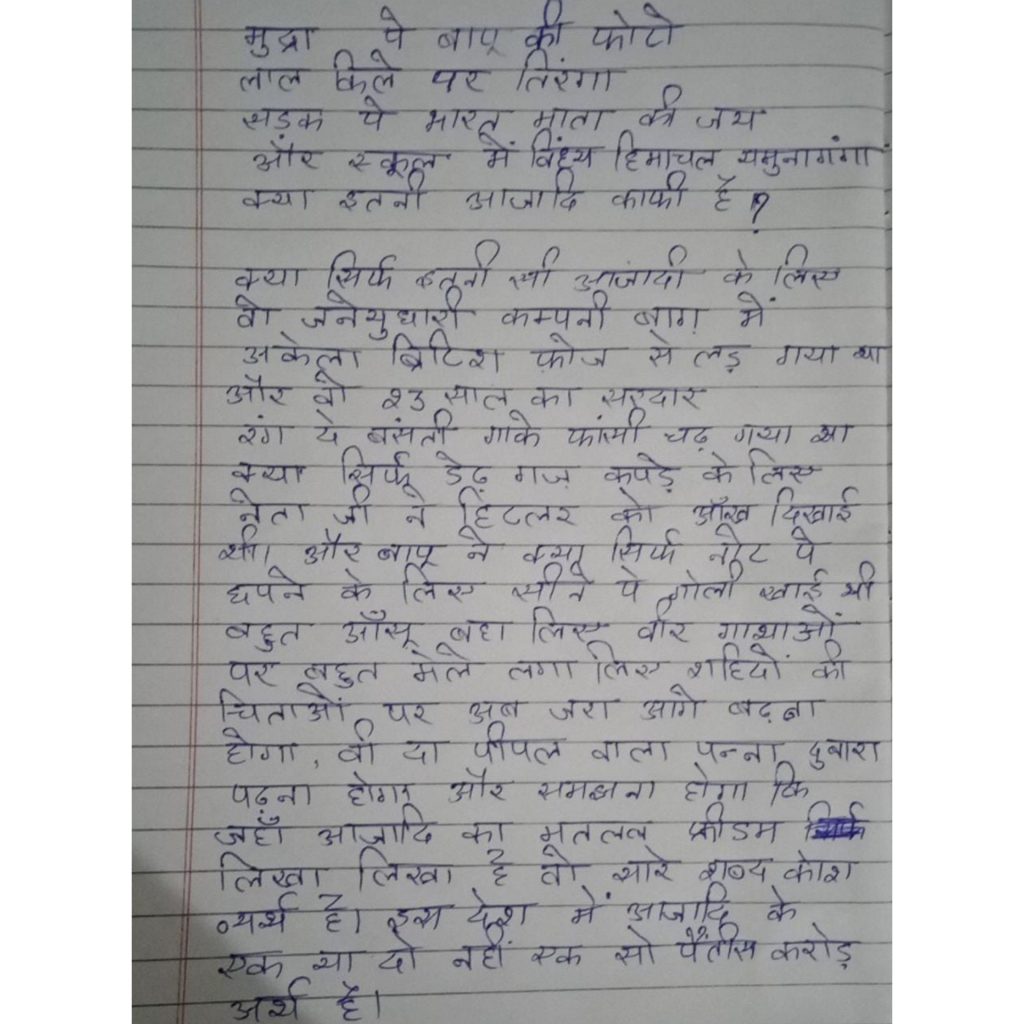 मुद्रा पे बापू की फोटो
लाल किले पर तिरंगा
सड़क पे भारत माता की जय
और स्कूल में विंध्य हिमाचल यमुनागंगा
क्या इतनी आजादि काफी है ?
क्या सिर्फ इतनी सी आजादी के लिए
वो जनेयुधारी कम्पनी बाग़ में
अकेला ब्रिटिश फ़ोज से लड़ गया था
और वो २३ साल का सरदार
रंग दे बसंती गाके फांसी चढ़ गया था
क्या सिर्फ डेढ़ गज़ कपड़े के लिए
नेता जी ने हिटलर को आँख दिखाई
थी। और बापू ने क्या सिर्फ नोट पे
छपने के लिए सीने पे गोली खाई थी
बहुत आँसू बहा लिए वीर गाथाओं
पर बहुत मेले लगा लिए शहिदों की
चिताओं पर अब जरा आगे बढ़ना
होगा, वो दा पीपल वाला पन्ना दुबारा
पढ़ना होगा और समझना होगा कि
जहाँ आजादि का मतलब फ्रीडम
लिखा लिखा है वो सारे शब्द कोश
व्यर्थ है। इस देश में आजादि के
एक या दो नहीं एक सो पैंतीस करोड़
अर्थ है।